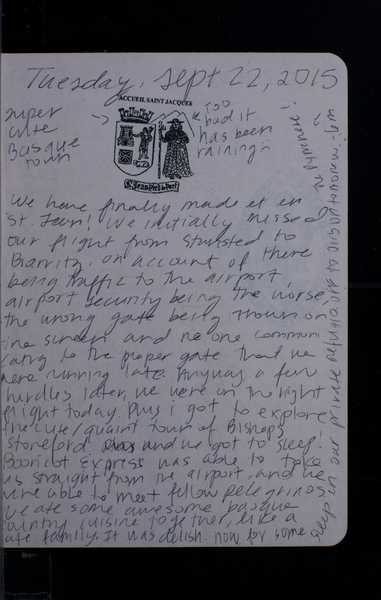 Tuesday, Sept 22, 2015
ACCUEIL SAINT JACQUES
super
cute
Basque
town
too
bad it
has been
raining
St Jean Pied de Port
We have finally made it in
St. Jean! We initially missed
our flight from Stansted to
Biarritz, on account of there
being traffic to the airport,
airport security being the worse,
the wrong gate being shown on
the screen and no one communi
cating to the proper gate that we
were running late. Anyway a few
hurdles later, we were on the right
flight today. Plus I got to explore
the cute/quaint town of Bishops
Stortford and we got to sleep!
Bourricot Express was able to take
us straight from the airport, and we
were able to meet fellow pelegrinos
we ate some awesome basque
country cuisine together, like a
cute family. It was delish. Now for some
sleep in our private